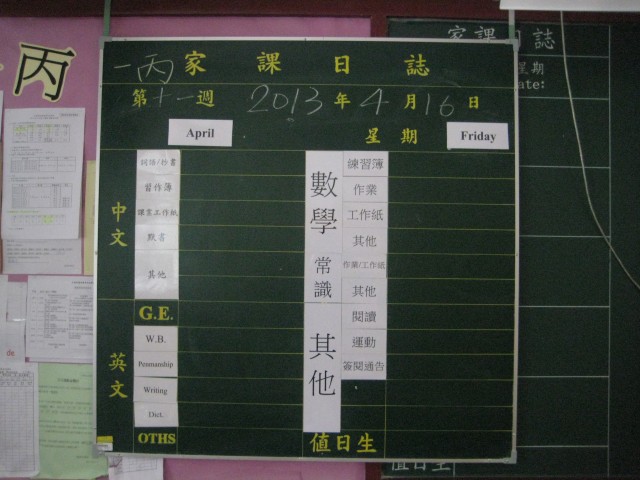 丙
一丙家課日誌
第十一週 2013年4月16日
April 星期 Friday
中文
習作簿
默書
其他
英文
G.E.
W.B.
Penmanship
Writing
Dict.
OTHS
數學
練習簿
作業
工作紙
其他
常識
作業/工作紙
其他
其他
閱讀
運動
簽閱通告
值日生
家課日誌
星期
值日生